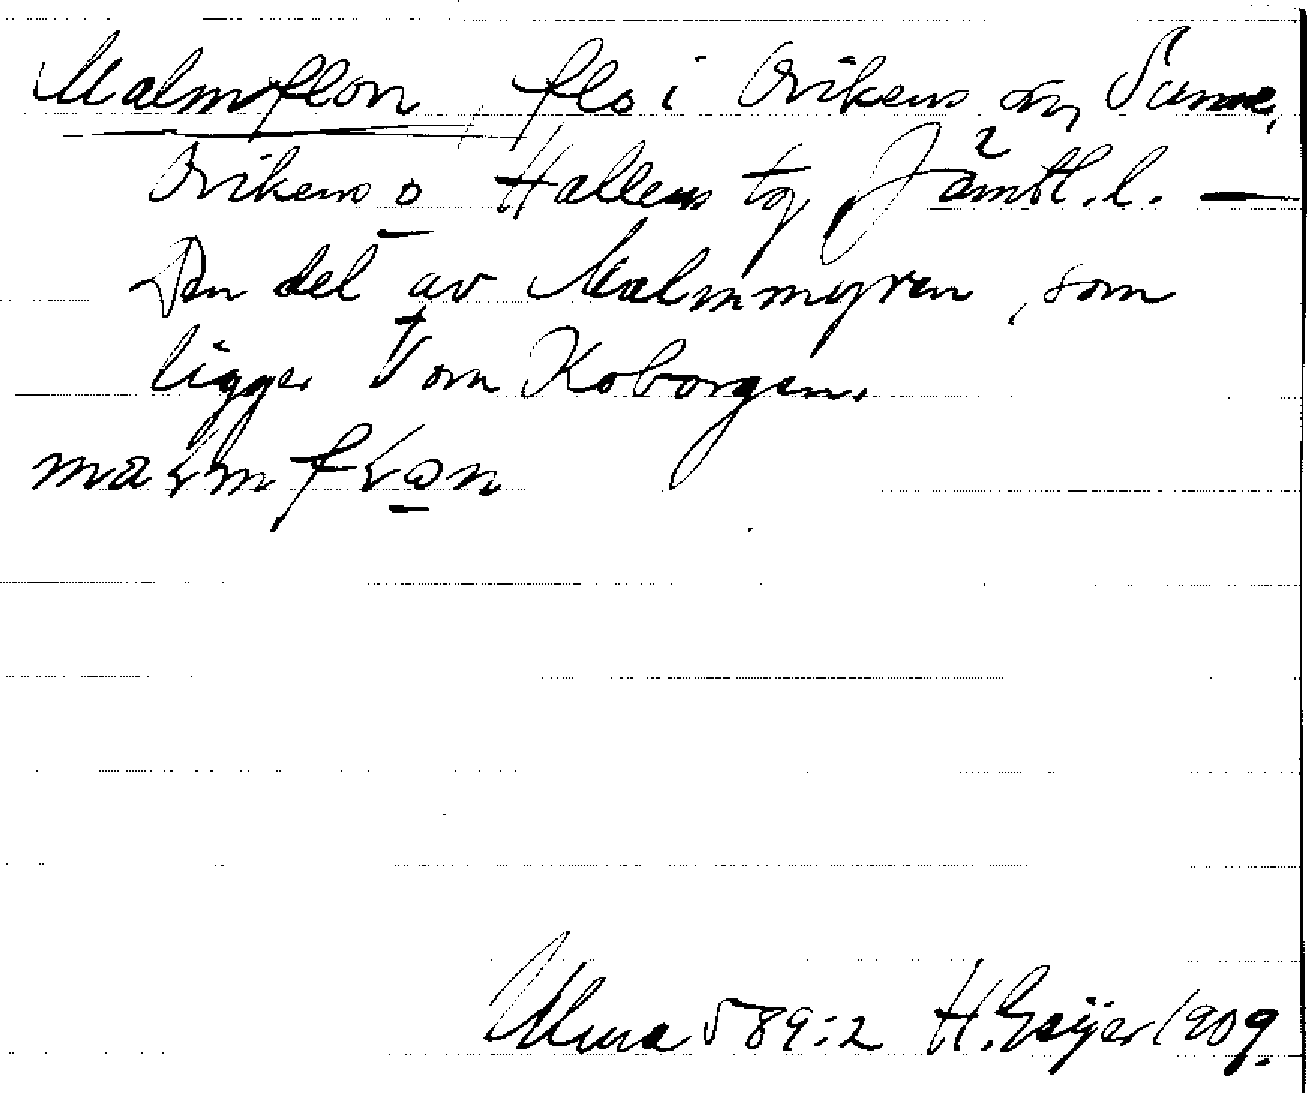 Malmflon flo i Ovikens sn, Sunne,
Ovikens o Hallens tg Jämtl. l. —
Den del av Malmmyren, som
ligger V om Koborgen.
malmflon
Ulma 589:2 H. Geijer 1909.